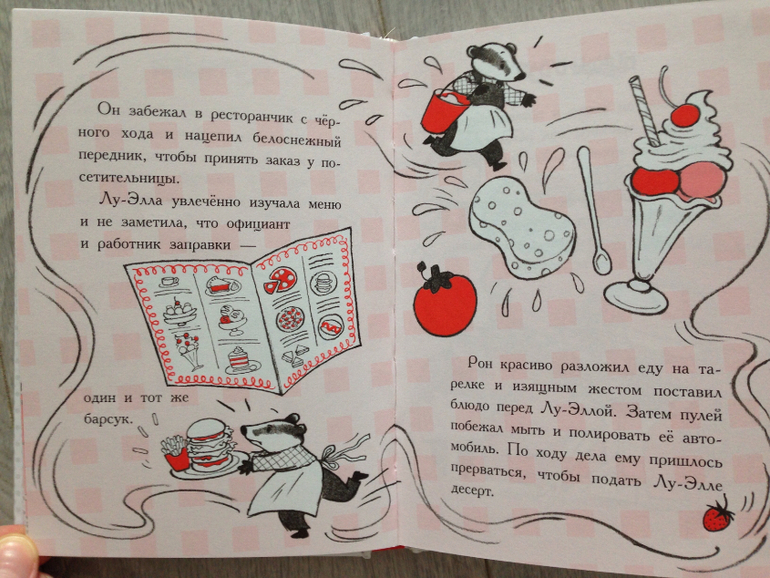 Он забежал в ресторанчик с чёр-
ного хода и нацепил белоснежный
передник, чтобы принять заказ у по-
сетительницы.
Лу-Элла увлечённо изучала меню
и не заметила, что официант
и работник заправки —
один и тот же
барсук.
Рон красиво разложил еду на та-
релке и изящным жестом поставил
блюдо перед Лу-Эллой. Затем пулей
побежал мыть и полировать её авто-
мобиль. По ходу дела ему пришлось
прерваться, чтобы подать Лу-Элле
десерт.